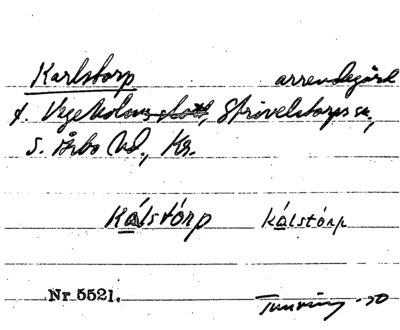 Karlstorp arrendegård
f. Vegeholms slott, Strövelstorps sn,
S. Åsbo hd, Kr.
Kálstórp kálstórp
Nr 5521. Tunving -70